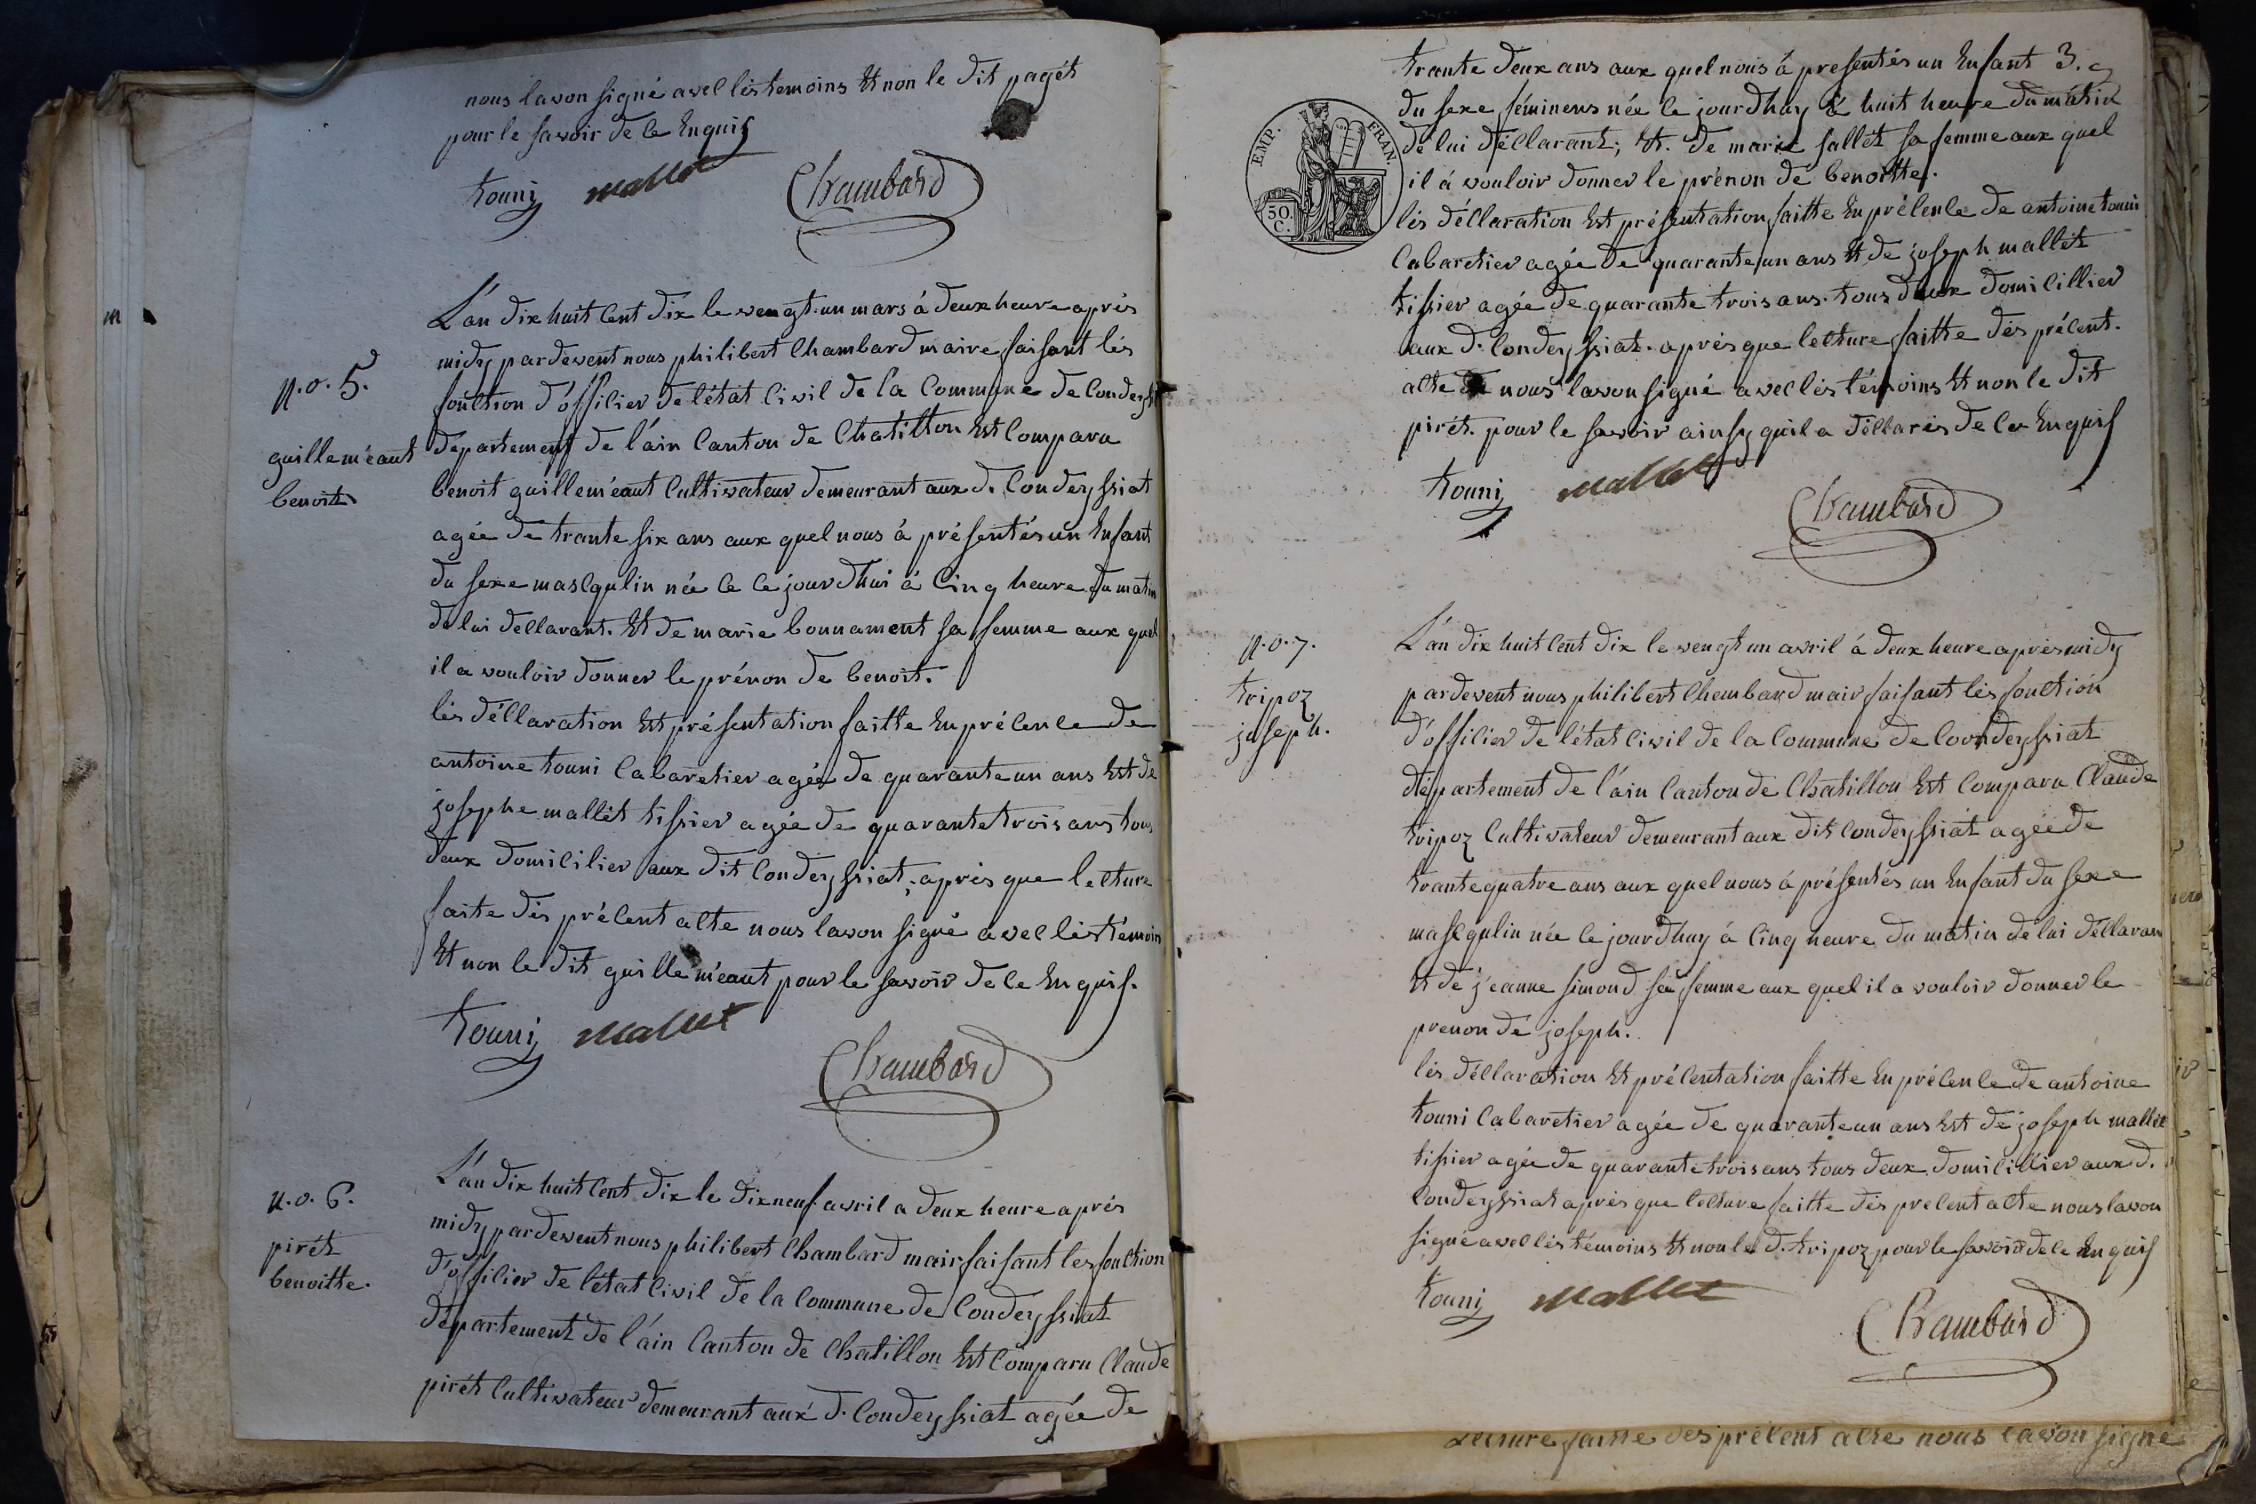 nous lavon signé avec lès temoins Et non le dit pagét
pour le savoir de ce Enquis
touni mallet Chambard
n.o. 5.
guilleméaut
benoit
L'án dix huit Cent dix le vengt-un mars á deux heure aprés
midy pardevent nous philibert Chambard maire faisant lés
fonction d'officier de l'état Civil de la Commune de Condeyssiat
département de l'ain Canton de Chatillon Est Comparu
benoit guilleméaut Cultivateur demeurant aux d. Condeyssiat
agée de trante six ans aux quel nous á présentés un Enfant
du sexe mascqulin née ce ce jourdhui á Cinq heure du matin
de lui decllarant. Et de marie bonnament sa femme aux quel
il a vouloir donner le prénon de benoit.
lés décllaration Est présentation faitte En précence de
antoine touni Cabaretier agée de quarante un ans Est de
josephe mallét tissier agée de quarante trois ans tous
deux domicilier aux dit Condeyssiat; aprés que lecture
faite dés précent acte nous lavon signé avec lés témoin
Et non le dit guilleméaut pour le savoir de ce Enquis.
touni mallet
Chambard
n.o. 6.
pirét
benoitte.
L'án dix huit Cent dix le dix neuf avril a deux heure aprés
midy pardevent nous philibert Chambard mair faisant les fonction
d'officier de l'état Civil de la Commune de Condeyssiat
département de l'áin Canton de Chatillon Est Comparu Claude
pirét Cultivateur demeurant aux d. Condeyssiat agée de
trante deux ans aux quel nous á presentés un Enfant 3.
du sexe féminens née ce jourdhuy á huit heure du mátin
de lui décllarant; Et. de marie sallét sa femme aux quel
il á vouloir donner le prénon de benoitte.
EMP. FRAN.
50. C.
lés décllaration Est présentation faitte En précence de antoine touni
Cabaretier agée de quarante un ans Et de joseph mallét
tissier agée de quarante trois ans. tous deux domicillier
aux d. Condeyssiat. aprés que lecture faitte dés précent.
acte nous lavon signé avec lés témoins Et non le dit
pirét. pour le savoir ainsy quil a décllarés de ce Enquis
touni mallet
Chambard
n.o. 7.
tripoz
joseph.
L'án dix huit Cent dix le vengt un avril á deux heure aprés midy
pardevent nous philibert Chembard mair faisant lés fonction
d'officier de l'état Civil de la Commune de Coondeyssiat
département de l'áin Canton de Chatillon Est Comparu Claude
tripoz Cultivateur demeurant aux dit Condeyssiat agée de
trante quatre ans aux quel nous á présentés un Enfant du sexe
mascqulin née ce jourdhuy á Cinq heure du matin de lui décllaran
Et de jeanne simond sa femme aux quel il a vouloir donner le
prenon de joseph.
lés décllaration Et précentation faitte En précence de antoine
touni Cabaretier agée de quarante un ans Est de joseph mallét
tissier agée de quarante trois ans tous deux domicillier aux d.
Condeyssiat aprés que lecture faitte dés precent acte nous lavon
signé avec lés témoins Et non le d. tripoz pour le savoir de ce Enquis
touni mallet
Chambard
Lecture faitte des précent acte nous lavon signé